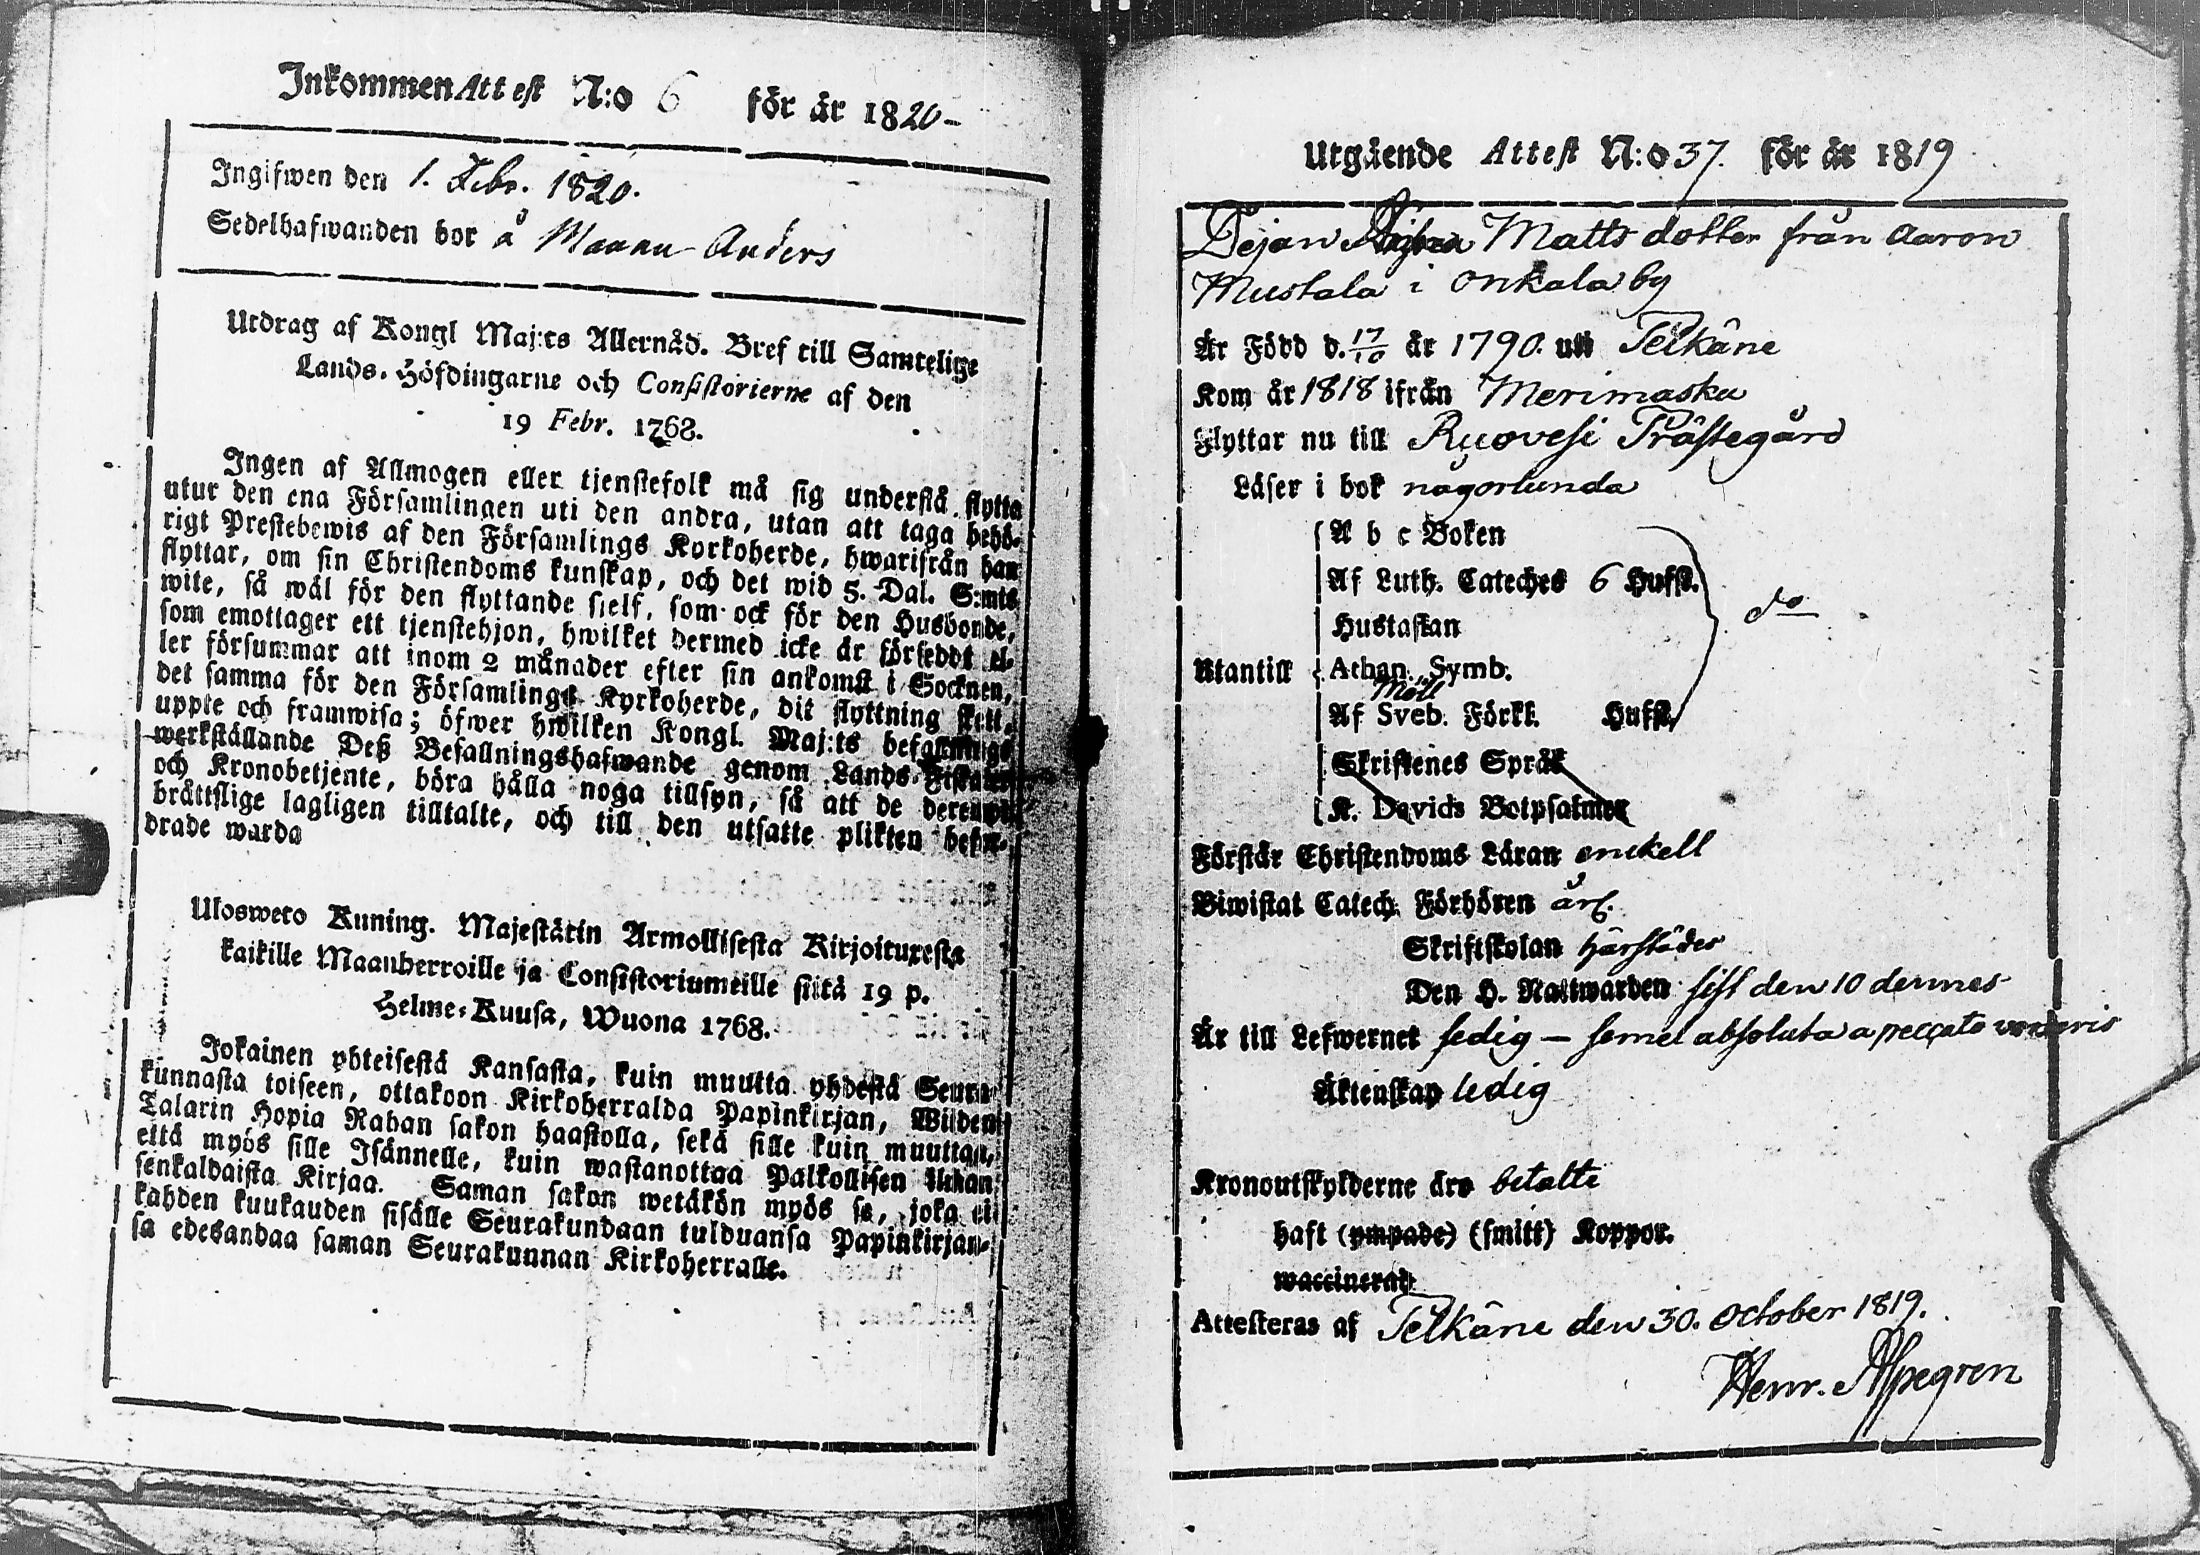 Inkommen Attest N:o 6 för år 1820 –
Ingifwen den 1. Febr. 1820.
Sedelhafwanden bor å Mannu Anders
Utdrag af Kongl Maj:ts Allernåd. Bref till Samtelige
Lands-Höfdingarne och Consistorierne af den
19 Febr. 1768.
Ingen af Allmogen eller tjenstefolk må sig understå flytta
utur den ena Församlingen uti den andra, utan att taga behö-
rigt Prestebewis af den Församlings Kyrkoherde, hwarifrån han
flyttar, om sin Christendoms kunskap, och det wid 5. Dal. S:mts
wite, så wäl för den flyttande sielf, som ock för den Husbonde,
som emottager ett tjenstehjon, hwilket dermed icke är försedt el-
ler försummar att inom 2 månader efter sin ankomst i Socknen,
det samma för den Församlings Kyrkoherde, dit flyttning skett,
uppte och framwisa; öfwer hwilken Kongl. Maj:ts befallnings
werkställande Deß Befallningshafwande genom Lands-Fiskaler
och Kronobetjente, böra hålla noga tillsyn, så att de deremot
bråttslige lagligen tilltalte, och till den utsatte plikten befor-
drade warda
Ulosweto Kuning. Majestätin Armollisesta Kirjoituxesta
kaikille Maanherroille ja Consistoriumeille siitä 19 p.
Helme-Kuusa, Wuona 1768.
Jokainen yhteisestä Kansasta, kuin muutta yhdestä Seura-
kunnasta toiseen, ottakoon Kirkoherralda Papinkirjan, Wiiden
Talarin Hopia Rahan sakon haastolla, sekä sille kuin muuttaa,
että myös sille Isännelle, kuin wastanottaa Palkollisen ilman
senkaldaista Kirjaa. Saman sakon wetäkön myös se, joka ei
kahden kuukauden sisälle Seurakundaan tulduansa Papinkirjan-
sa edesandaa saman Seurakunnan Kirkoherralle.
Utgående Attest N:o 37. för år 1819
Dejan Matts dotter från Aaron
Mustala i Onkala by
Är Född d. 17/10 år 1790. uti Pelkäne
Kom år 1818 ifrån Merimasku
Flyttar nu till Ruovesi Prästegård
Läser i bok någorlunda
A b c Boken
Af Luth. Cateches 6 Hufst.
Hustaflan
do
Utantill Athan. Symb.
Möll
Af Sveb. Förkl. Hufst.
Skriftenes Språk
K. Davids Botpsalmer
Förstår Christendoms Läran enkell
Biwistat Catech. Förhören årl.
Skriftskolan härstädes
Den H. Nattwarden sist den 10 dennes
Är till Lefwernet sedig – semel absoluta a peccato veneris
Äktenskap ledig
Kronoutskylderne äro betalte
haft (ympade) (smitt) Koppor.
waccinerad
Attesteras af Pelkäne den 30. October 1819.
Henr. Alpegren